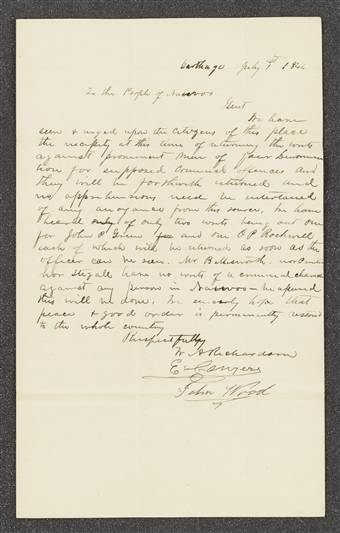 Carthage July 1st 1846
To the People of Nauvoo
Gent
We have
seen & urged upon the Citizens of this place
the necessity at this time of returning the writs
against prominent men of your Denomina
tion for supposed Criminal offences and
they will be forthwith returned and
no apprehensions need be entertained
of any annoyance from this source, We have
heard only of two writs being out one
for John P. Green and one O P Rockwell
each of which will be returned as soon as the
officer can be seen. Mr
nor have no writs of a criminal character
against any persons in Nauvoo
this will be done. We sincerely hope that
peace & good order is permanently restored
to the whole country
Respectfully
W A Richardson
E Conyers
John Wood